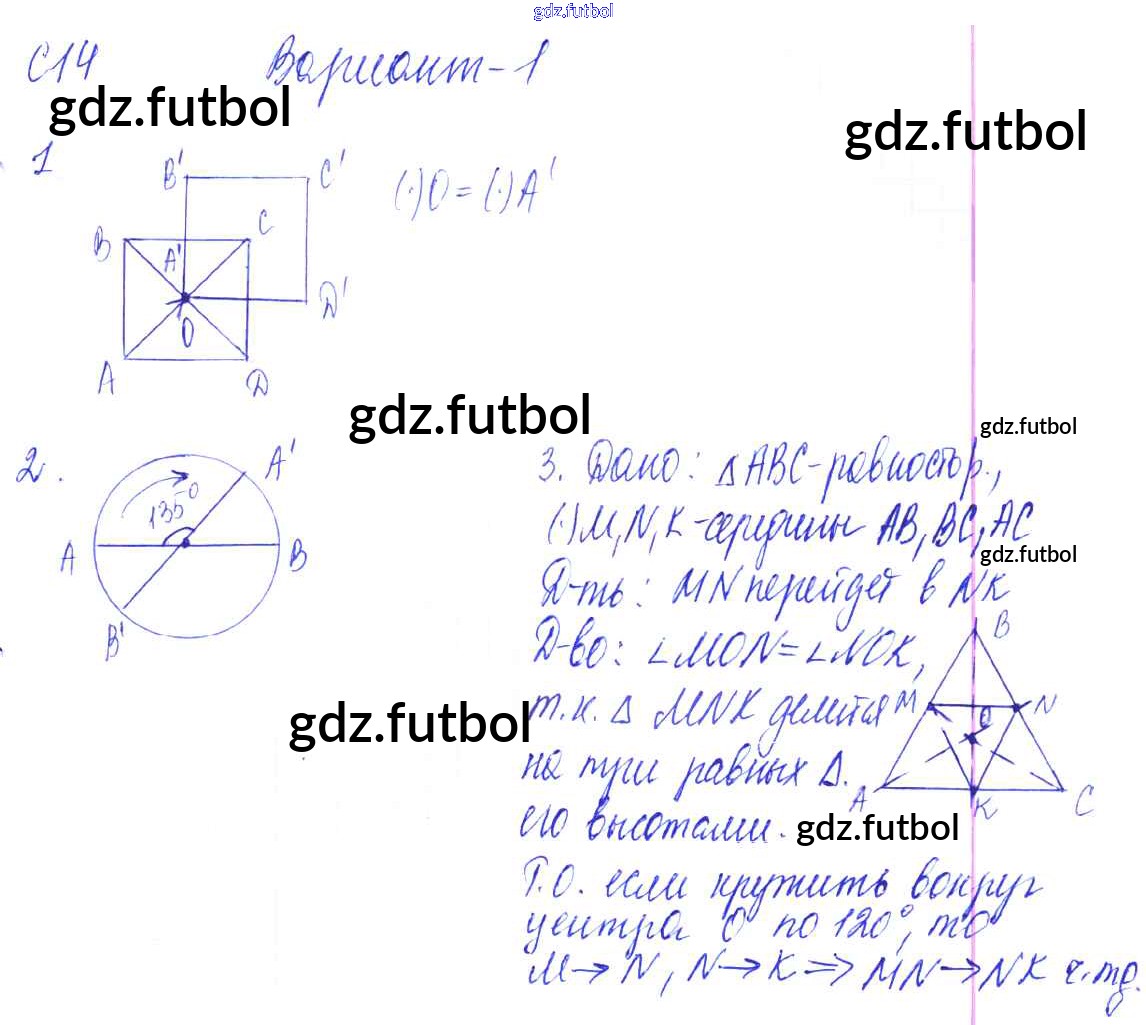 gdz.futbol
С14 Вариант-1
gdz.futbol
gdz.futbol
1
B' C'
(·)O = (·)A'
B A' C
O D'
A D
gdz.futbol
2.
A'
135°
A B
B'
gdz.futbol
3. Дано: △ABC-равностор.,
(·)M,N,K-середины AB,BC,AC
gdz.futbol
Д-ть: MN перейдет в NK
Д-во: ∠MON=∠NOK,
т.к. △ MNK делится
на три равных △.
его высотами.
B
M N
O
A K C
gdz.futbol
gdz.futbol
Т.О. если крутить вокруг
центра O по 120°, то
M→N, N→K ⇒ MN→NK ч.тд.